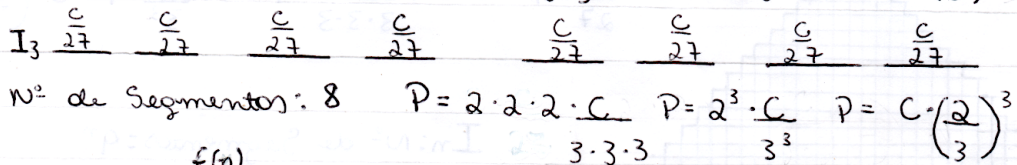 I₃ C/27 C/27 C/27 C/27 C/27 C/27 C/27 C/27
Nº de Segmentos: 8 P = 2·2·2·C/3·3·3 P = 2³·C/3³ P = C·(2/3)³
f(n)